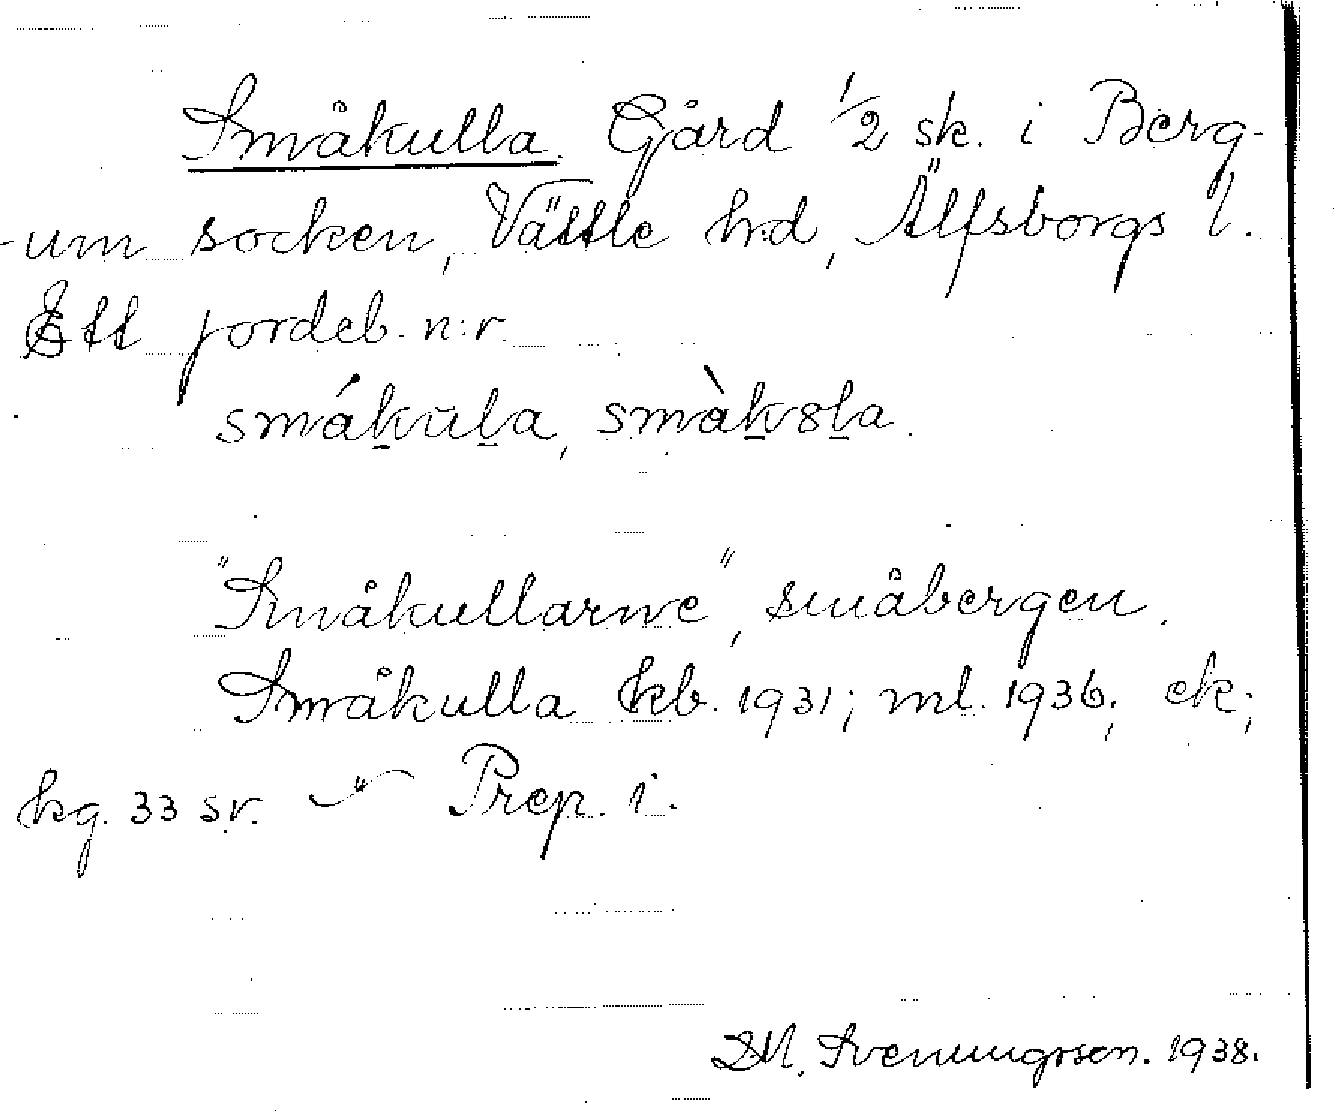 Småkulla. Gård 1/2 sk. i Berg-
-um socken, Vättle hd, Älfsborgs l.
Ett jordeb. n:r.
smákula, smàk8la.
"Småkullarne", småbergen.
Småkulla kb. 1931; ml. 1936; ek;
kg. 33 sv. —"— Prep. i.
D.M. Svenungsson. 1938.